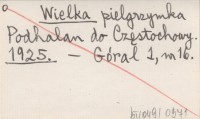 Wielka pielgrzymka
Podhalan do Częstochowy.
1925. — Góral 1, nr 16.